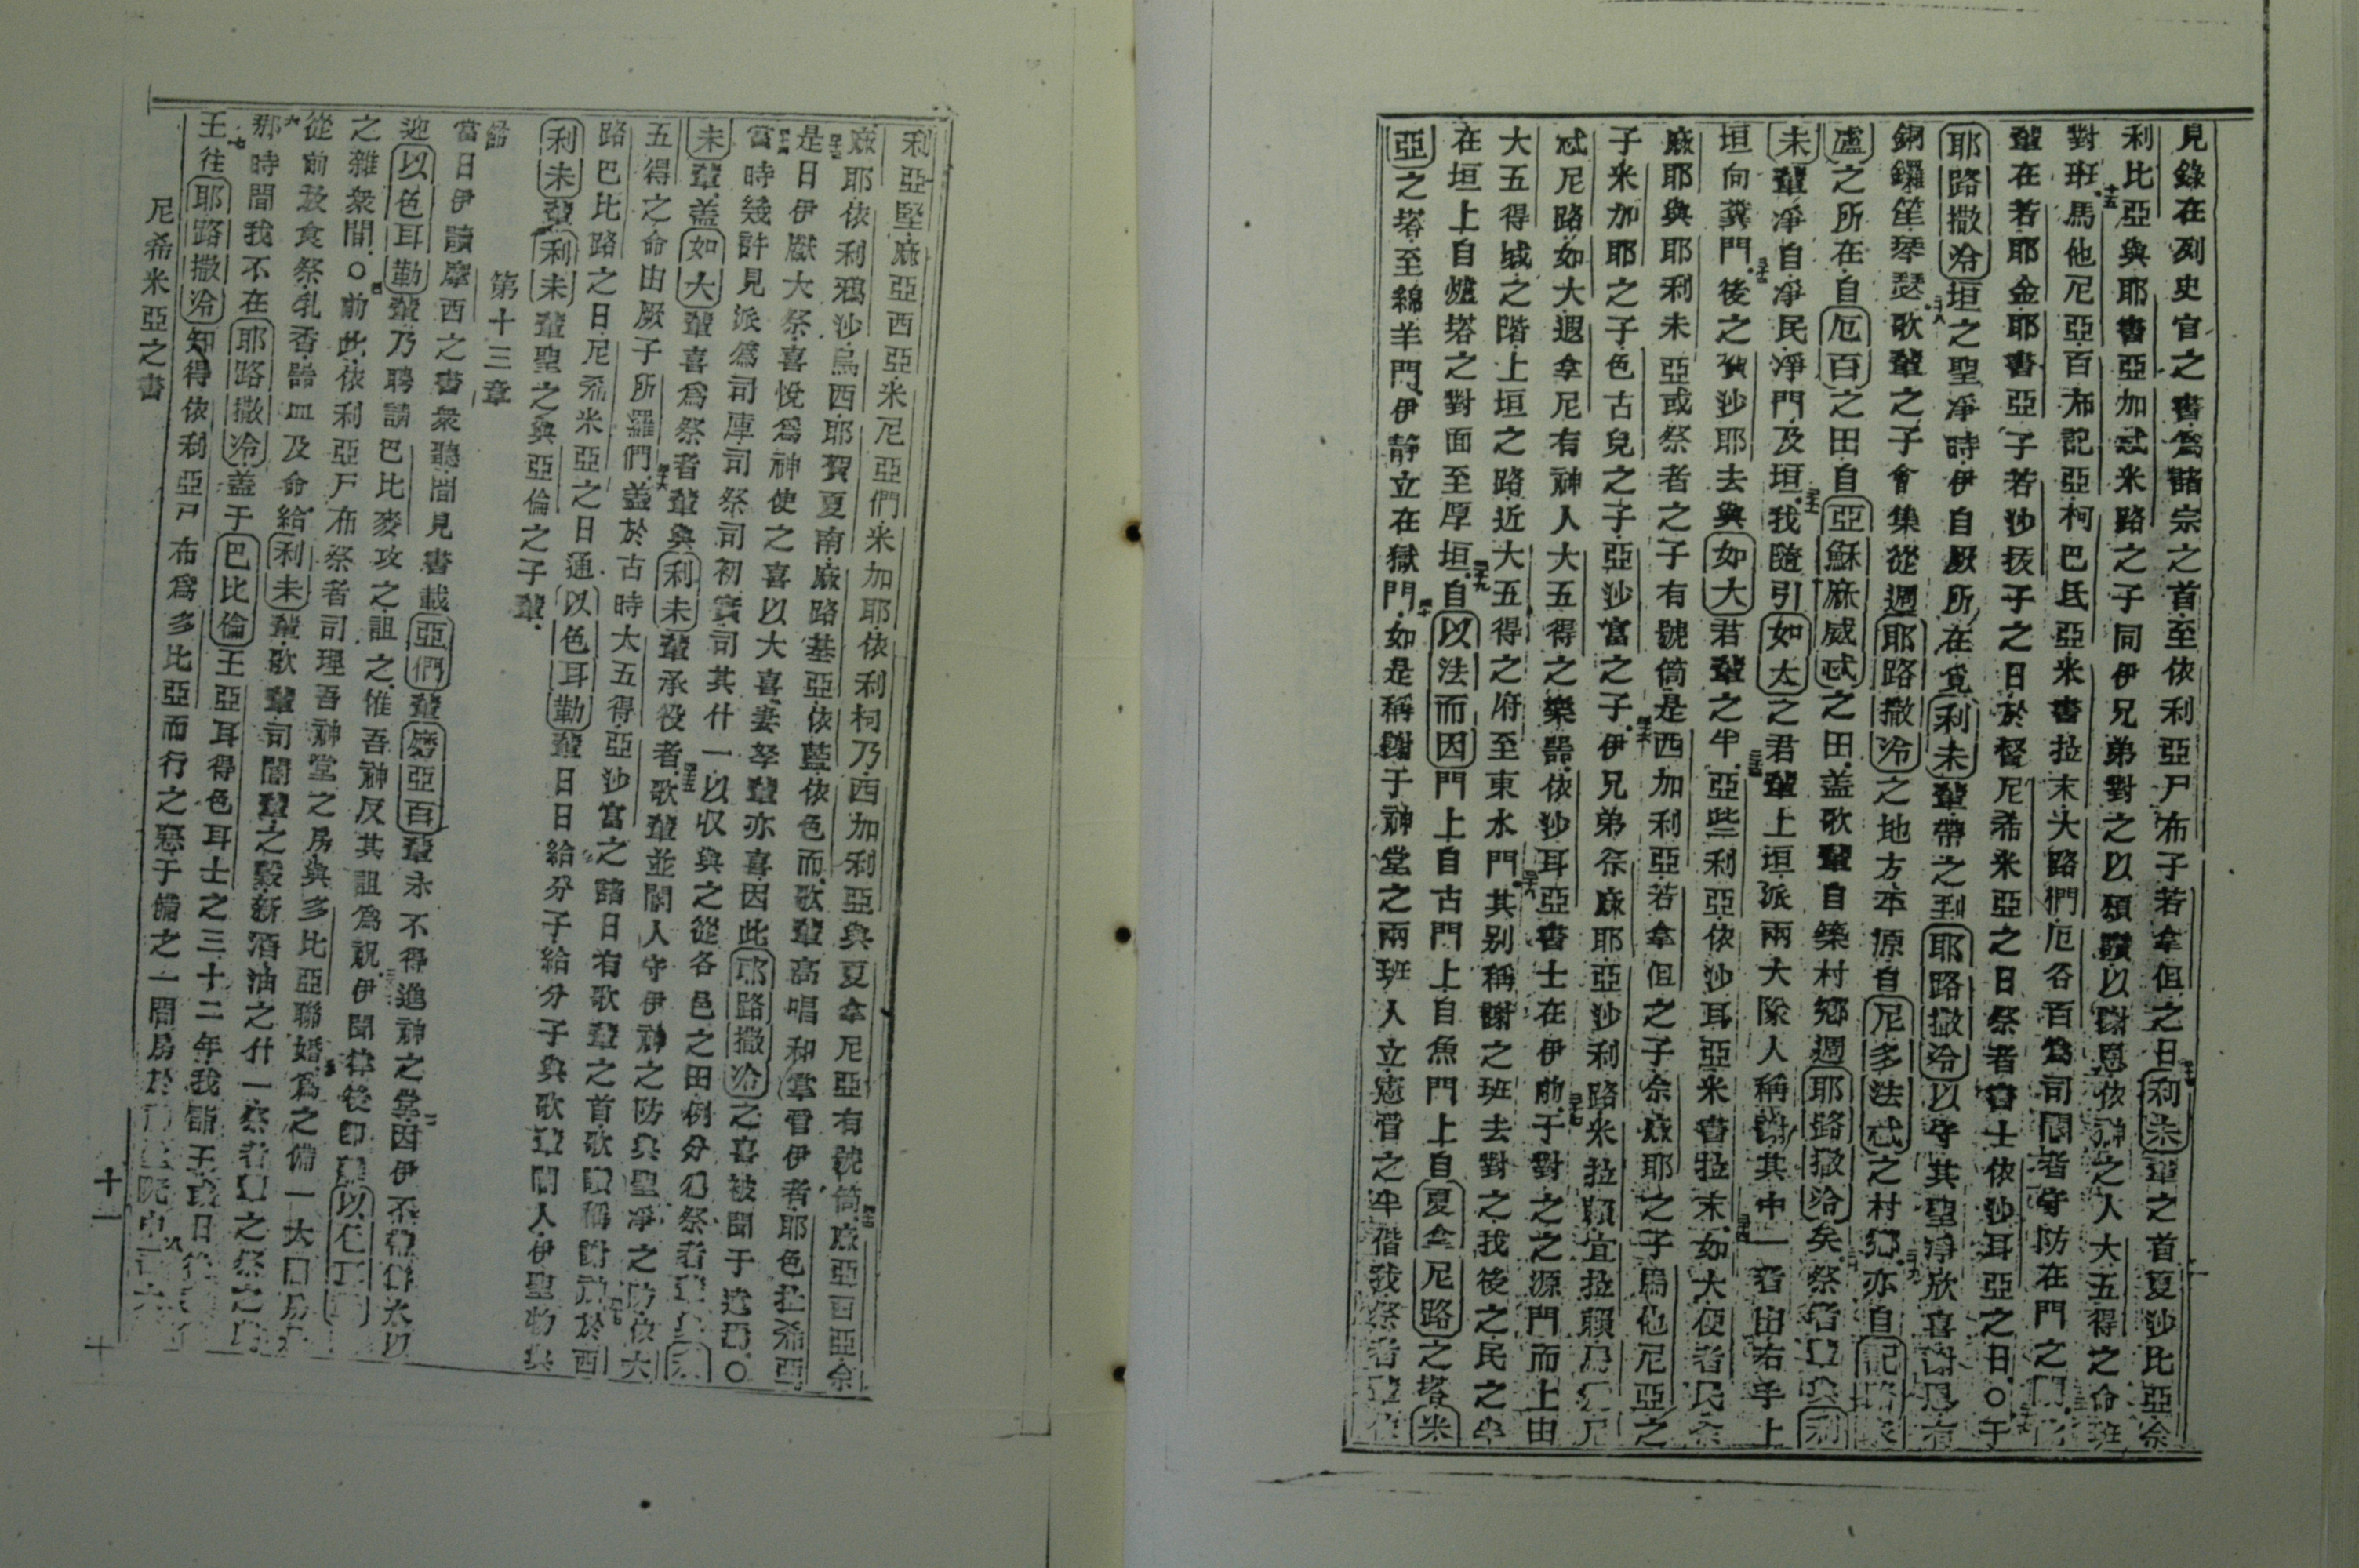 見錄在列史官之書爲諸宗之首至依利亞尸布子若拿但之日利未輩之首夏沙比亞余
利比亞與耶書亞加忒米路之子同伊兄弟對之以頌讚以謝恩依神之人大五得之命班
對班馬他尼亞百布記亞柯巴氐亞米書拉末大路們厄谷百爲司閽者守防在門之
輩在若耶金耶書亞子若沙拔子之日於督尼希米亞之日祭者書士依沙耳亞之日○于
耶路撒冷垣之聖淨時伊自厥所在覓利未輩帶之到耶路撒冷以守其聖淨欣喜謝恩有
銅鑼笙琴瑟歌輩之子會集從週耶路撒冷之地方本源自尼多法忒之村鄉亦自記路
盧之所在自厄百之田自亞穌麻威忒之田蓋歌輩自築村鄉週耶路撒冷矣祭者輩與利
未輩淨自淨民淨門及垣我隨引如大之君輩上垣派兩大隊人稱謝其中一者由右手上
垣向糞門後之賀沙耶去與如大君輩之半亞些利亞依沙耳亞米書拉末如大便者民
麻耶與耶利未亞或祭者之子有號筒是西加利亞若拿但之子余麻耶之子馬他尼亞之
子米加耶之子色古兒之子亞沙富之子伊兄弟余麻耶亞沙利路米拉顯宜拉賴
忒尼路如大遐拿尼有神人大五得之樂器依沙耳亞書士在伊前于對之之源門而上由
大五得城之階上垣之路近大五得之府至東水門其別稱謝之班去對之我後之民之半
在垣上自爐塔之對面至厚垣自以法而因門上自古門上自魚門上自夏拿尼路之塔米
亞之塔至綿羊門伊靜立在獄門如是稱謝于神堂之兩班人立憲督之半偕我祭者
利亞堅麻亞西亞米尼亞們米加耶依利柯乃西加利亞與夏拿尼亞有號筒麻亞西亞余
麻耶依利鴉沙烏西耶賀夏南麻路基亞依藍依色而歌輩高唱和掌督伊者耶色拉希亞
是日伊獻大祭喜悅爲神使之喜以大喜妻孥輩亦喜因此耶路撒冷之喜被聞于遠焉○
當時幾許見派爲司庫司祭司初實司其什一以收與之從各邑之田例分爲祭者輩與利
未輩蓋如大輩喜爲祭者輩與利未輩承役者歌輩並閽人守伊神之防與聖淨之防依大
五得之命由厥子所羅們蓋於古時大五得亞沙富之諸日有歌輩之首歌讚稱謝神於西
路巴比路之日尼希米亞之日通以色耳勒輩日日給分子給分子與歌輩閽人伊聖物與
利未輩利未輩聖之與亞倫之子輩
第十三章
當日伊讀摩西之書衆聽間見書載亞們輩磨亞百輩永不得進神之堂因伊不
迎以色耳勒輩乃聘請巴比麥攻之詛之惟吾神反其詛爲祝伊聞律後即
之雜衆間○前此依利亞尸布祭者司理吾神堂之房與多比亞聯婚爲之備一大
從前放食祭乳香諸皿及命給利未輩歌輩司閽輩之穀新酒油之什一祭者輩之祭之
那時間我不在耶路撒冷蓋于巴比倫王亞耳得色耳士之三十二年我詣王
王往耶路撒冷知得依利亞尸布爲多比亞而行之惡于備之一間房於
尼希米亞之書
十一